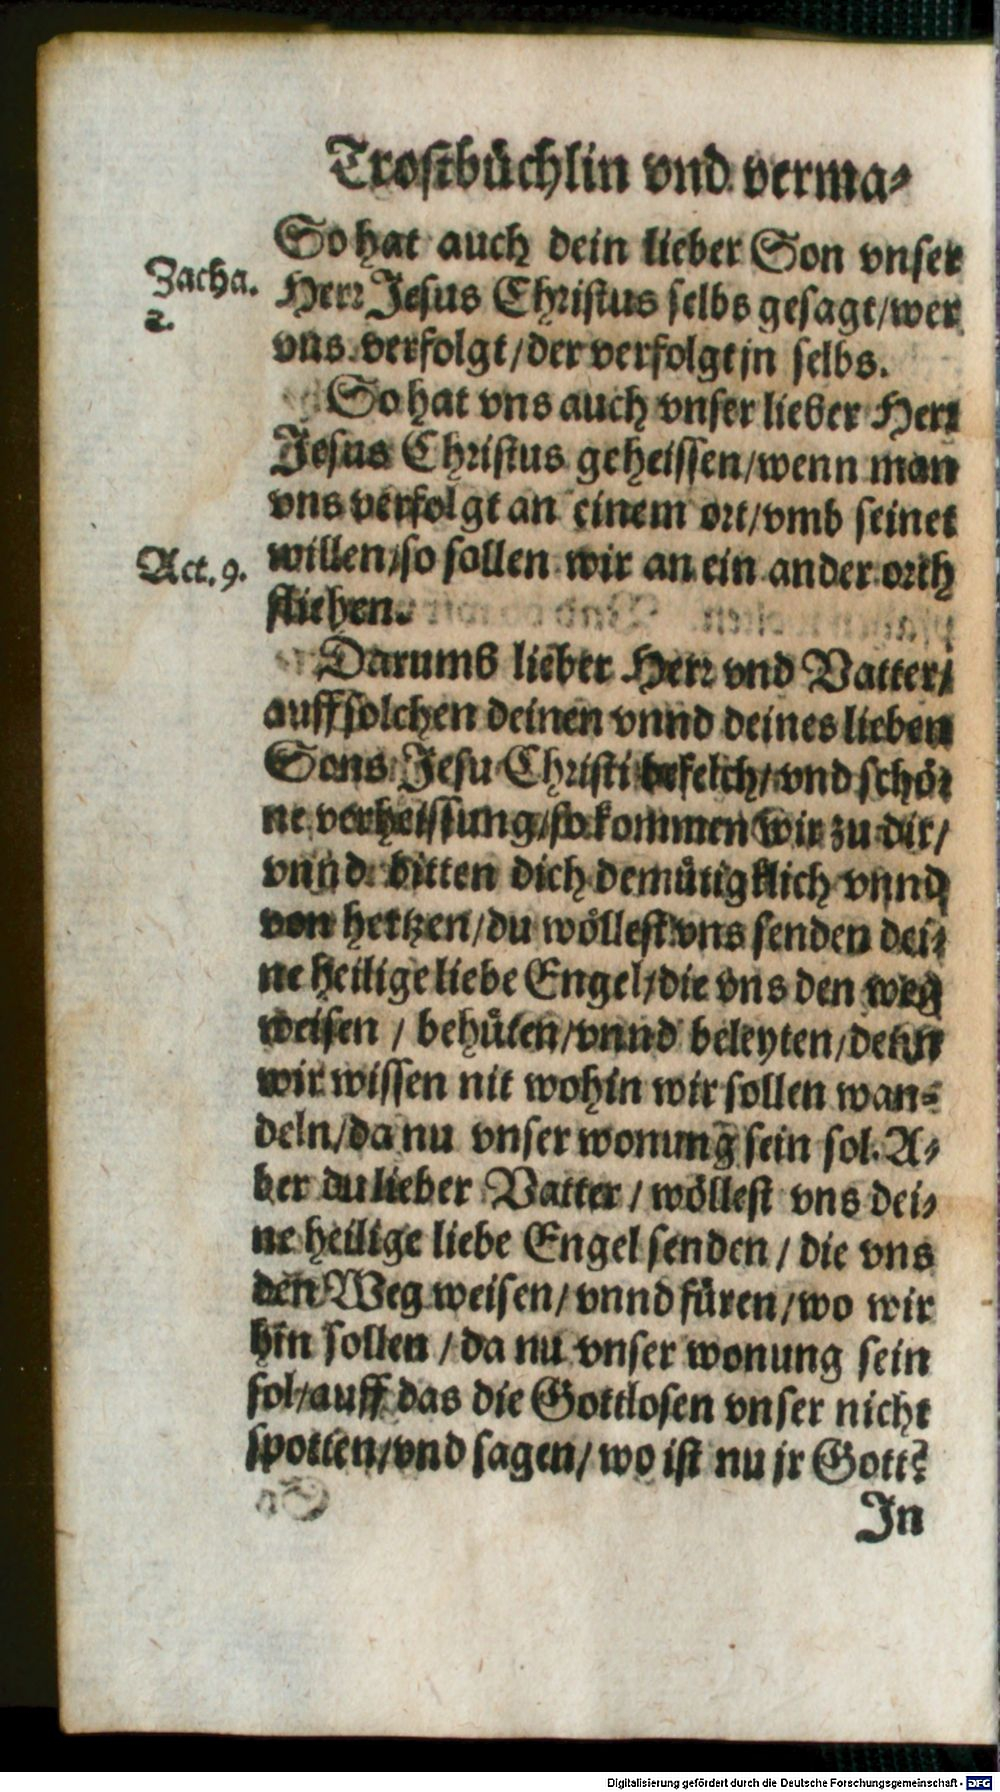 Trostbüchlin vnd verma-
So hat auch dein lieber Son vnser
Zacha. 2.
Herr Jesus Christus selbs gesagt/wer
vns verfolgt/der verfolgt jn selbs.
So hat vns auch vnser lieber Herr
Jesus Christus geheissen/wenn man
vns verfolgt an einem ort/vmb seinet
Act. 9.
willen/so sollen wir an ein ander orth
fliehen.
Darumb lieber Herr vnd Vatter/
auff solchen deinen vnnd deines lieben
Sons Jesu Christi befelch/vnd schö-
ne verheissung/so kommen wir zu dir/
vnnd bitten dich demütigklich vnnd
von hertzen/du wöllest vns senden dei-
ne heilige liebe Engel/die vns den weg
weisen / behüten/vnnd beleyten/denn
wir wissen nit wohin wir sollen wan-
deln/da nu vnser wonung sein sol. A-
ber du lieber Vatter / wöllest vns dei-
ne heilige liebe Engel senden / die vns
den Weg weisen/vnnd füren/wo wir
hin sollen / da nu vnser wonung sein
sol/auff das die Gottlosen vnser nicht
spotten/vnd sagen/wo ist nu jr Gott?
In
Digitalisierung gefördert durch die Deutsche Forschungsgemeinschaft - DFG